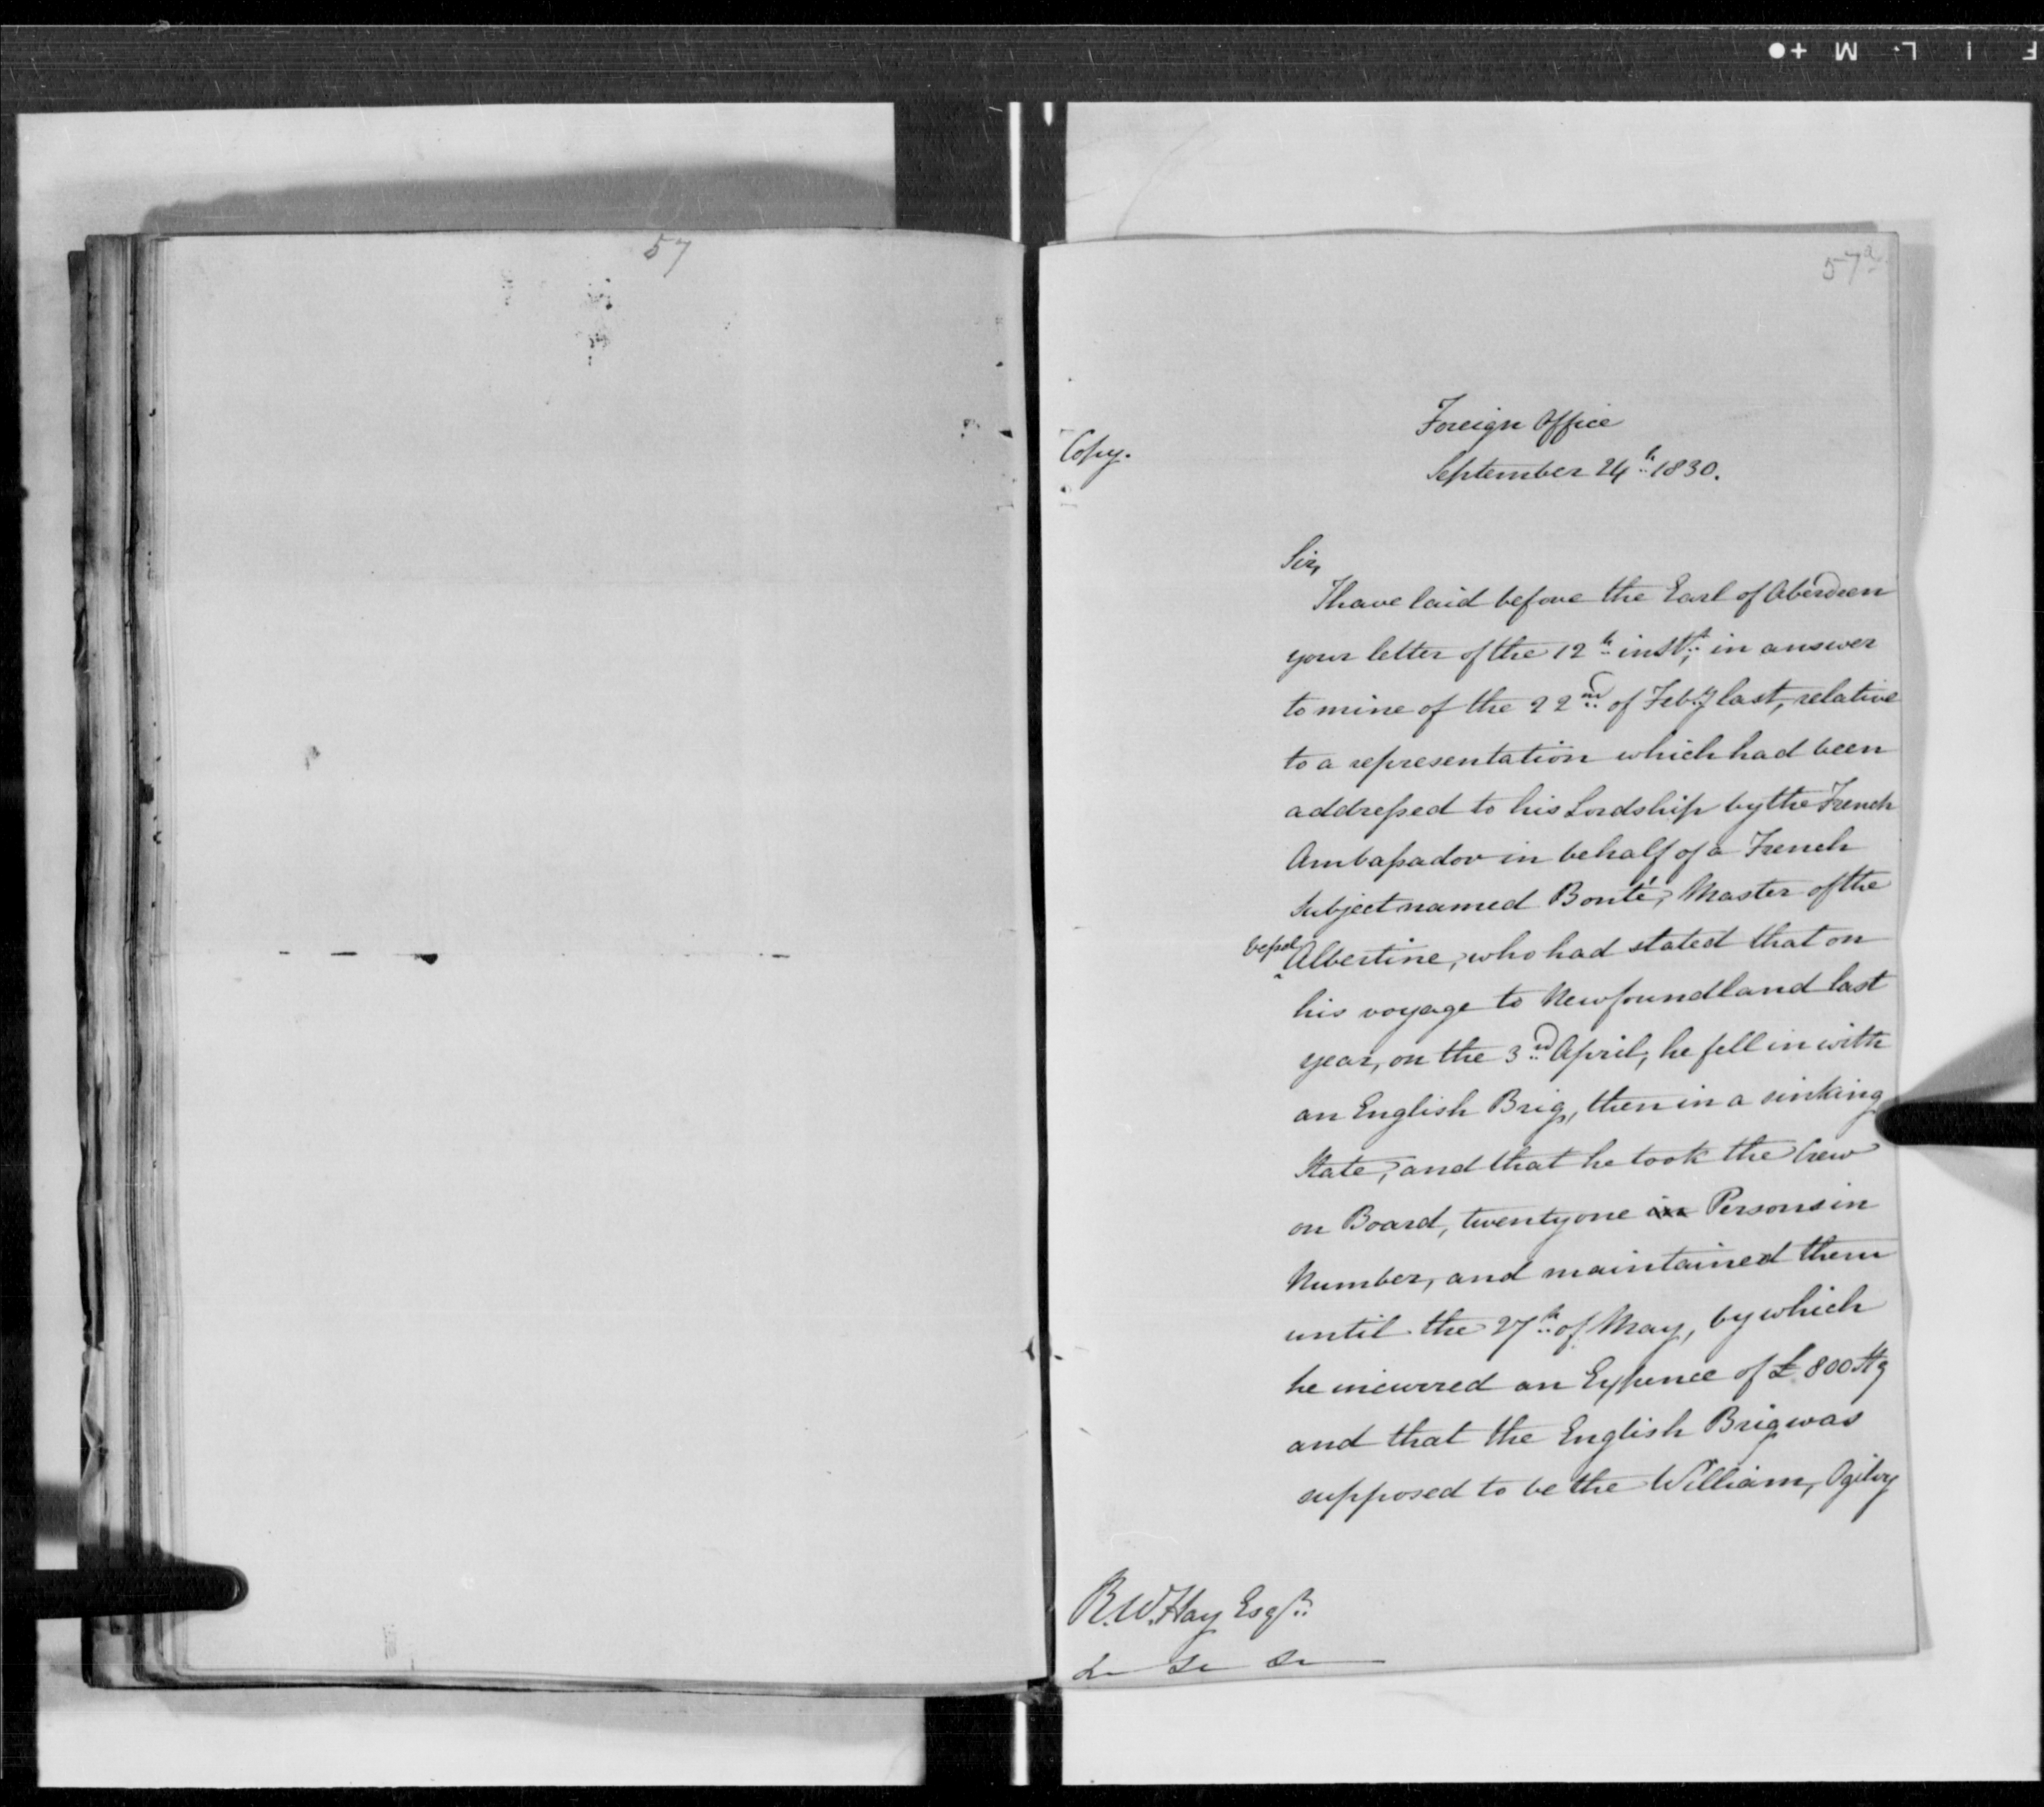 F I L M +●
57
57a
Copy.
Foreign Office
September 24th 1830.
Sir,
I have laid before the Earl of Aberdeen
your letter of the 12th inst, in answer
to mine of the 22nd of Feby last, relative
to a representation which had been
addressed to his Lordship by the French
Ambassador in behalf of a French
Subject named Bonté, Master of the
vessel
Albertine, who had stated that on
his voyage to Newfoundland last
year, on the 3rd April, he fell in with
an English Brig, then in a sinking
State, and that he took the Crew
on Board, twenty one in Persons in
Number, and maintained them
until the 27th of May, by which
he incurred an Expence of £800 Stg
and that the English Brig was
supposed to be the William, Ogilvy
R. W. Hay Esqr
&c &c &c